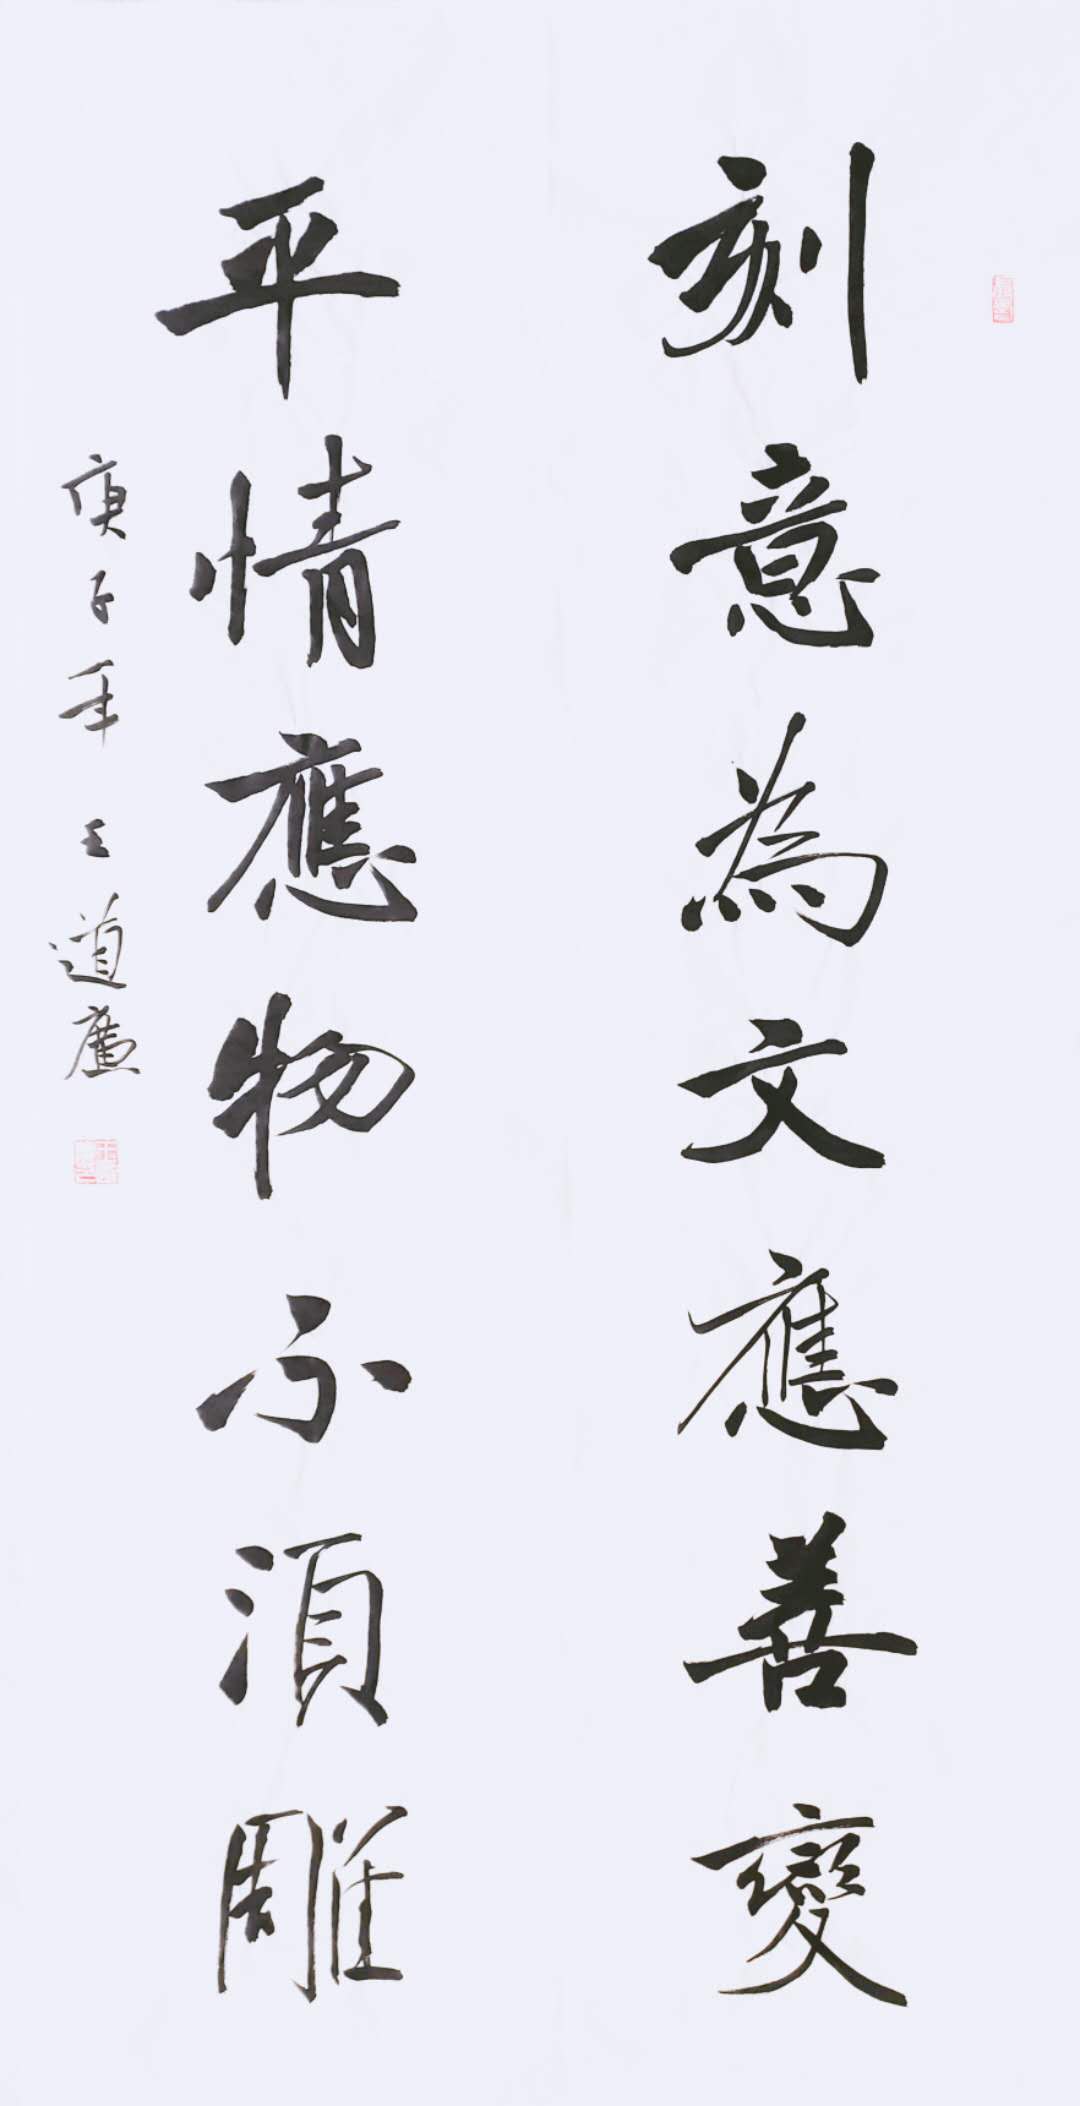 刻意為文應善變
平情應物不須雕
庚子年 王道廉